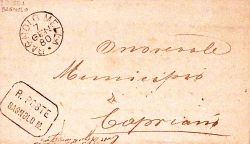 BAGNOLO
BAGNOLO MELLA
7
GEN
80
Onorevole
Municipio
di
Capriano
R. POSTE
BAGNOLO M.